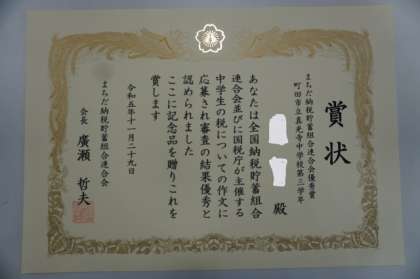 賞状
まちだ納税貯蓄組合連合会優秀賞
町田市立真光寺中学校第三学年
殿
あなたは全国納税貯蓄組合
連合会並びに国税庁が主催する
中学生の税についての作文に
応募され審査の結果優秀と
認められました
ここに記念品を贈りこれを
賞します
令和五年十一月二十九日
まちだ納税貯蓄組合連合会
会長 廣瀬 哲夫